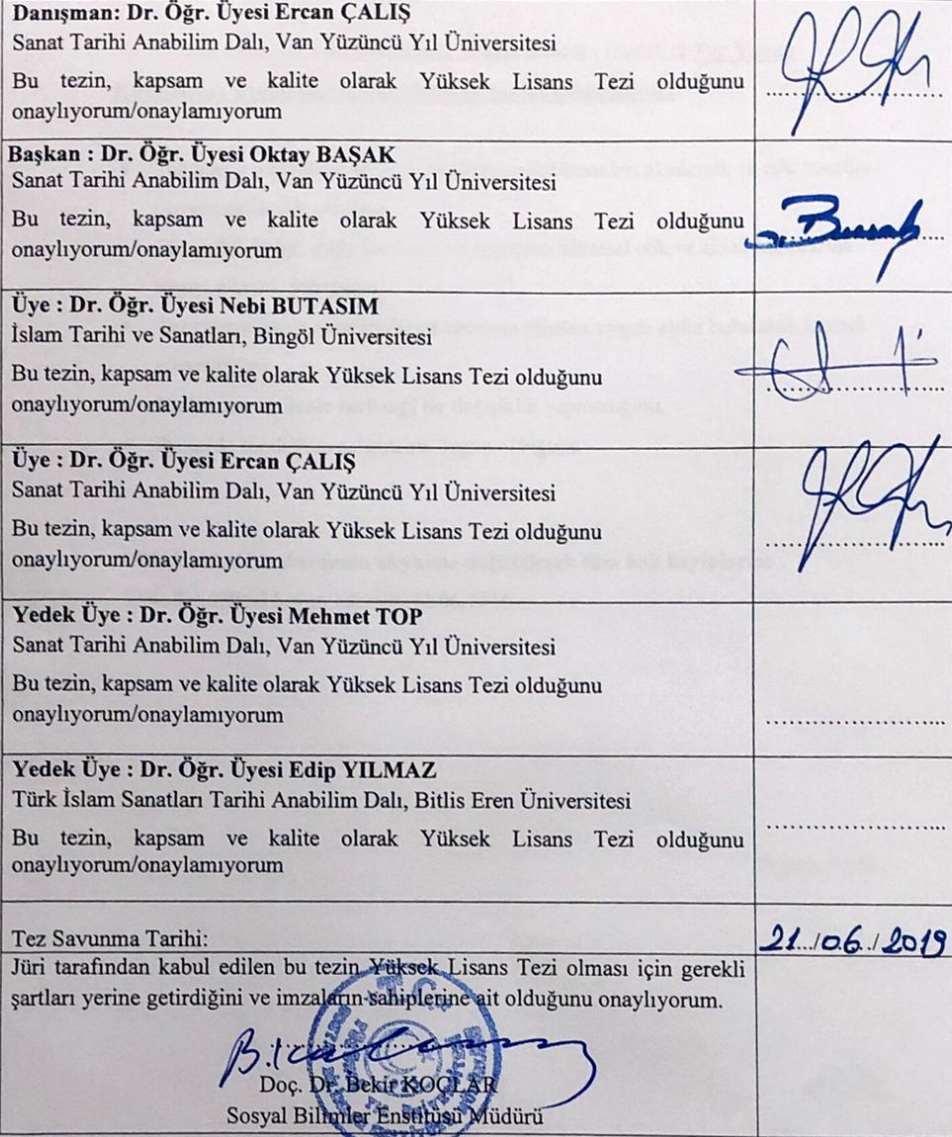 Danışman: Dr. Öğr. Üyesi Ercan ÇALIŞ
Sanat Tarihi Anabilim Dalı, Van Yüzüncü Yıl Üniversitesi
Bu tezin, kapsam ve kalite olarak Yüksek Lisans Tezi olduğunu
onaylıyorum/onaylamıyorum
Başkan : Dr. Öğr. Üyesi Oktay BAŞAK
Sanat Tarihi Anabilim Dalı, Van Yüzüncü Yıl Üniversitesi
Bu tezin, kapsam ve kalite olarak Yüksek Lisans Tezi olduğunu
onaylıyorum/onaylamıyorum
Üye : Dr. Öğr. Üyesi Nebi BUTASIM
İslam Tarihi ve Sanatları, Bingöl Üniversitesi
Bu tezin, kapsam ve kalite olarak Yüksek Lisans Tezi olduğunu
onaylıyorum/onaylamıyorum
Üye : Dr. Öğr. Üyesi Ercan ÇALIŞ
Sanat Tarihi Anabilim Dalı, Van Yüzüncü Yıl Üniversitesi
Bu tezin, kapsam ve kalite olarak Yüksek Lisans Tezi olduğunu
onaylıyorum/onaylamıyorum
Yedek Üye : Dr. Öğr. Üyesi Mehmet TOP
Sanat Tarihi Anabilim Dalı, Van Yüzüncü Yıl Üniversitesi
Bu tezin, kapsam ve kalite olarak Yüksek Lisans Tezi olduğunu
onaylıyorum/onaylamıyorum
Yedek Üye : Dr. Öğr. Üyesi Edip YILMAZ
Türk İslam Sanatları Tarihi Anabilim Dalı, Bitlis Eren Üniversitesi
Bu tezin, kapsam ve kalite olarak Yüksek Lisans Tezi olduğunu
onaylıyorum/onaylamıyorum
Tez Savunma Tarihi: 21../06../2019
Jüri tarafından kabul edilen bu tezin Yüksek Lisans Tezi olması için gerekli
şartları yerine getirdiğini ve imzaların sahiplerine ait olduğunu onaylıyorum.
T.C.
Doç. Dr. Bekir KOÇLAR
Sosyal Bilimler Enstitüsü Müdürü